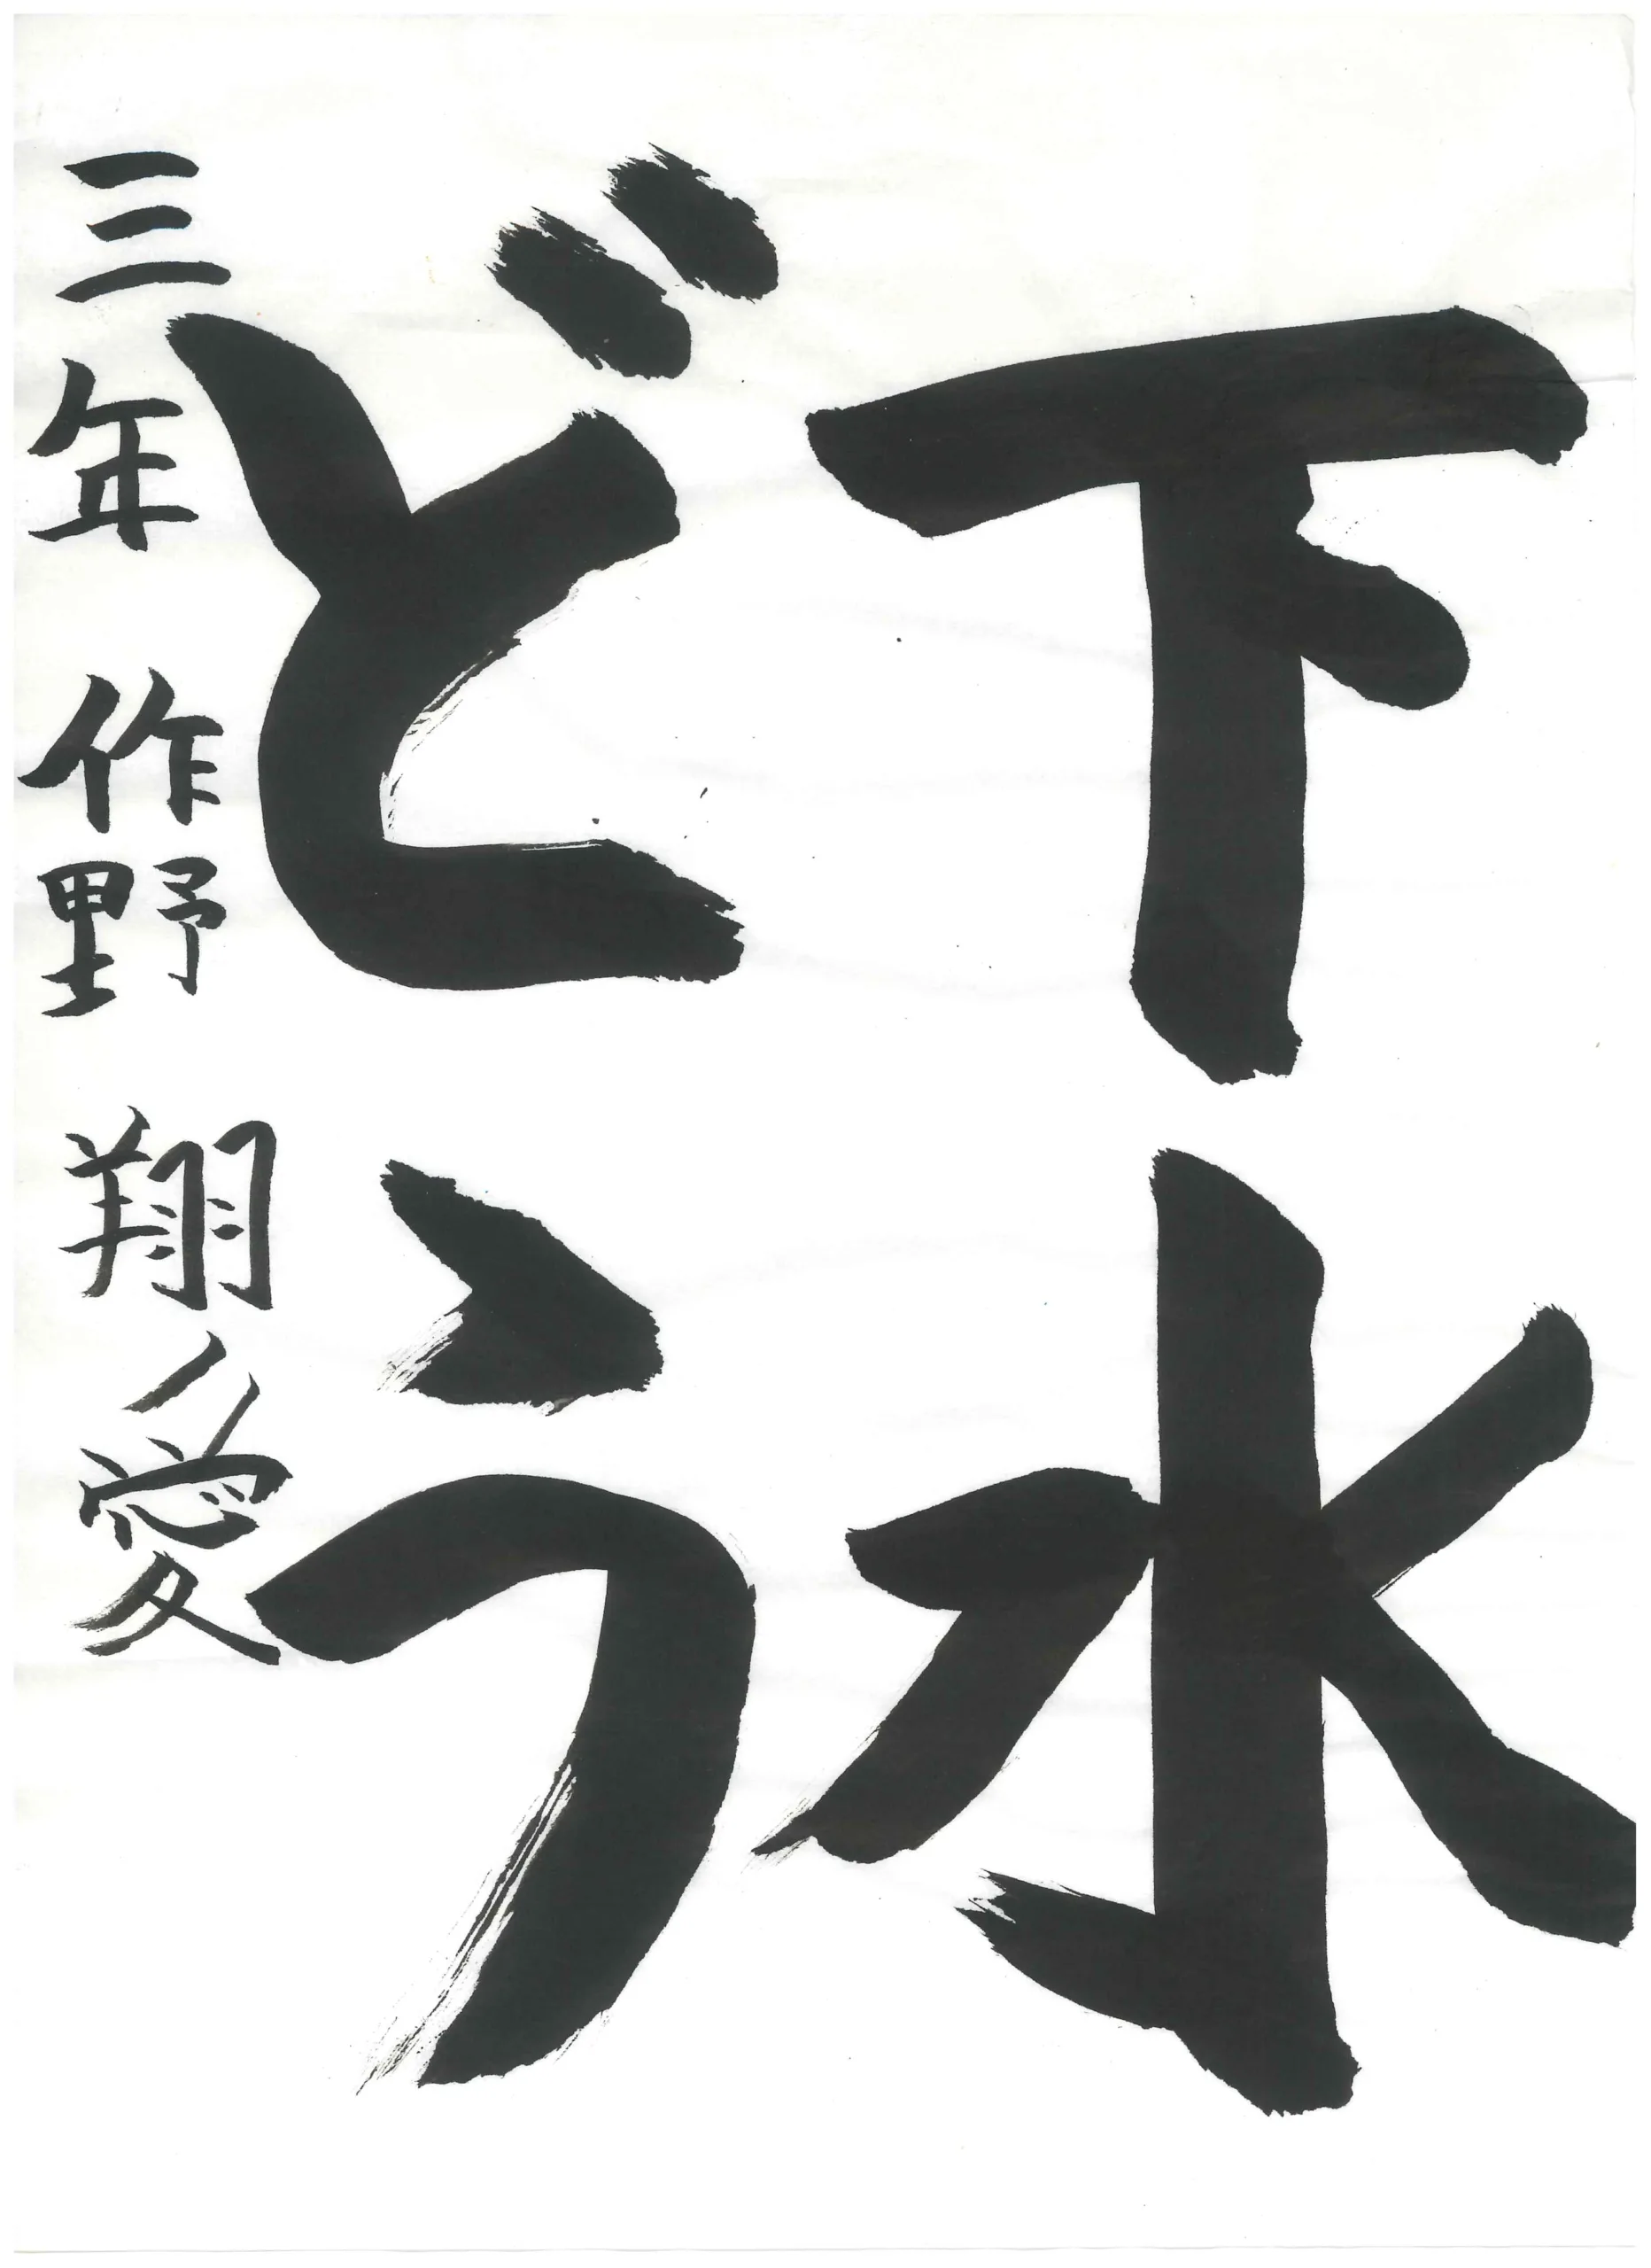 下水
どう
三年 作野 翔愛